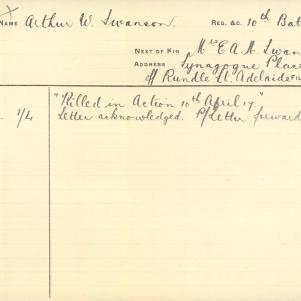 NAME Arthur W. Swanson. REG. &C. 10th Bat
NEXT OF KIN Mrs E A M. Swan
ADDRESS Synagogue Place
off Rundle St. Adelaide FIL
1/4 "Killed in Action 10th April 17."
Letter acknowledged. P/Letter forward